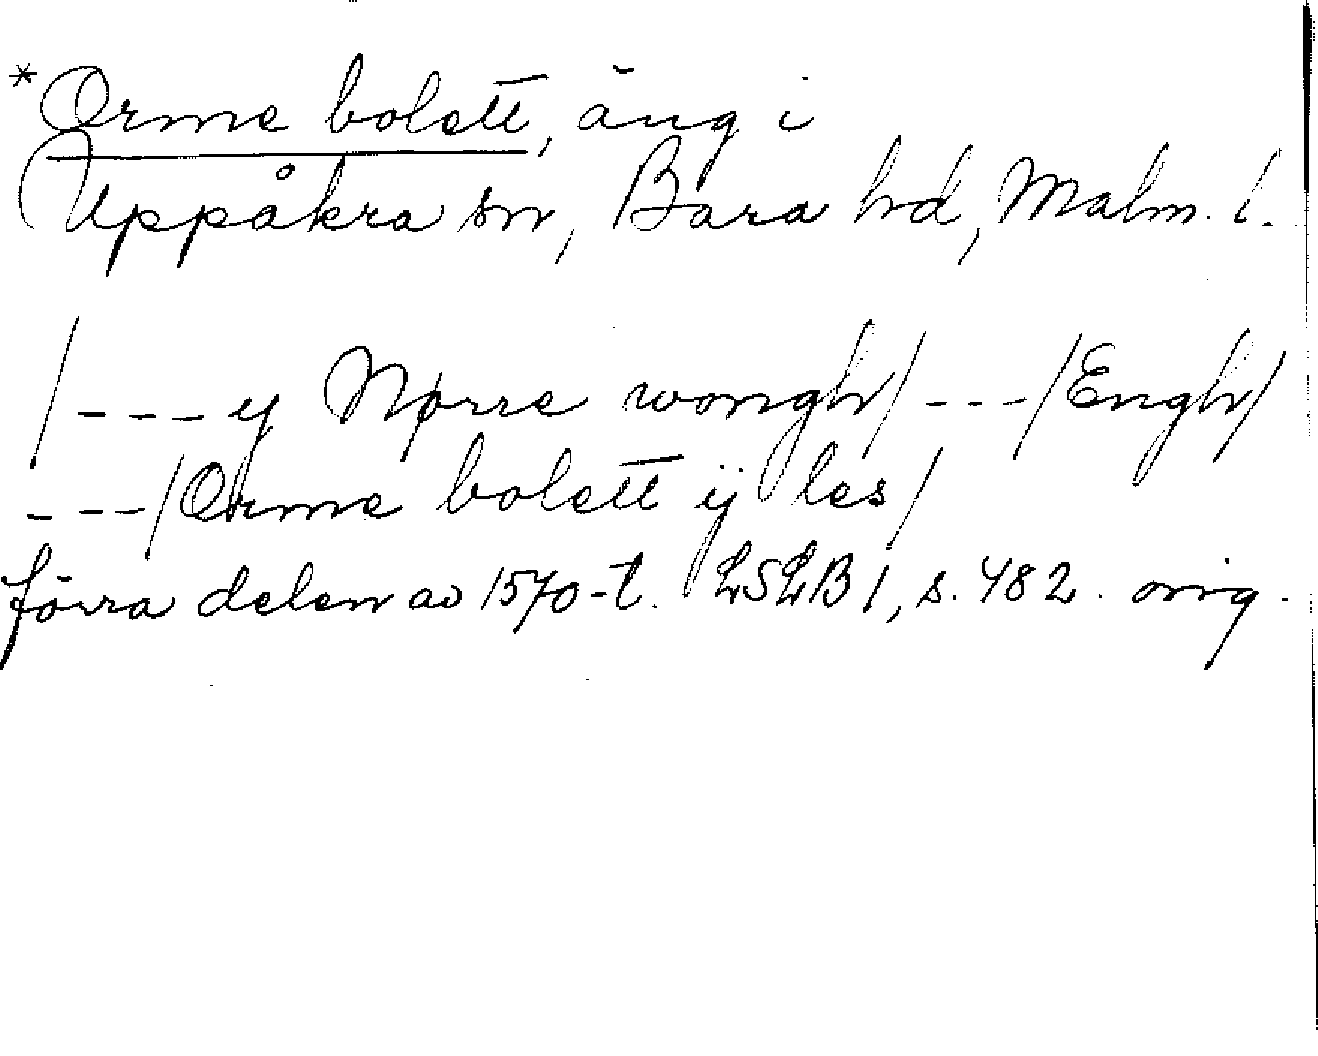 *Orme bolett, äng i
Uppåkra sn, Bara hd, Malm. l.
/---y Nørre wongh/---/Engh/
---/Orme bolett ij les/
förra delen av 1570-t. LSLB 1, s. 482. orig.